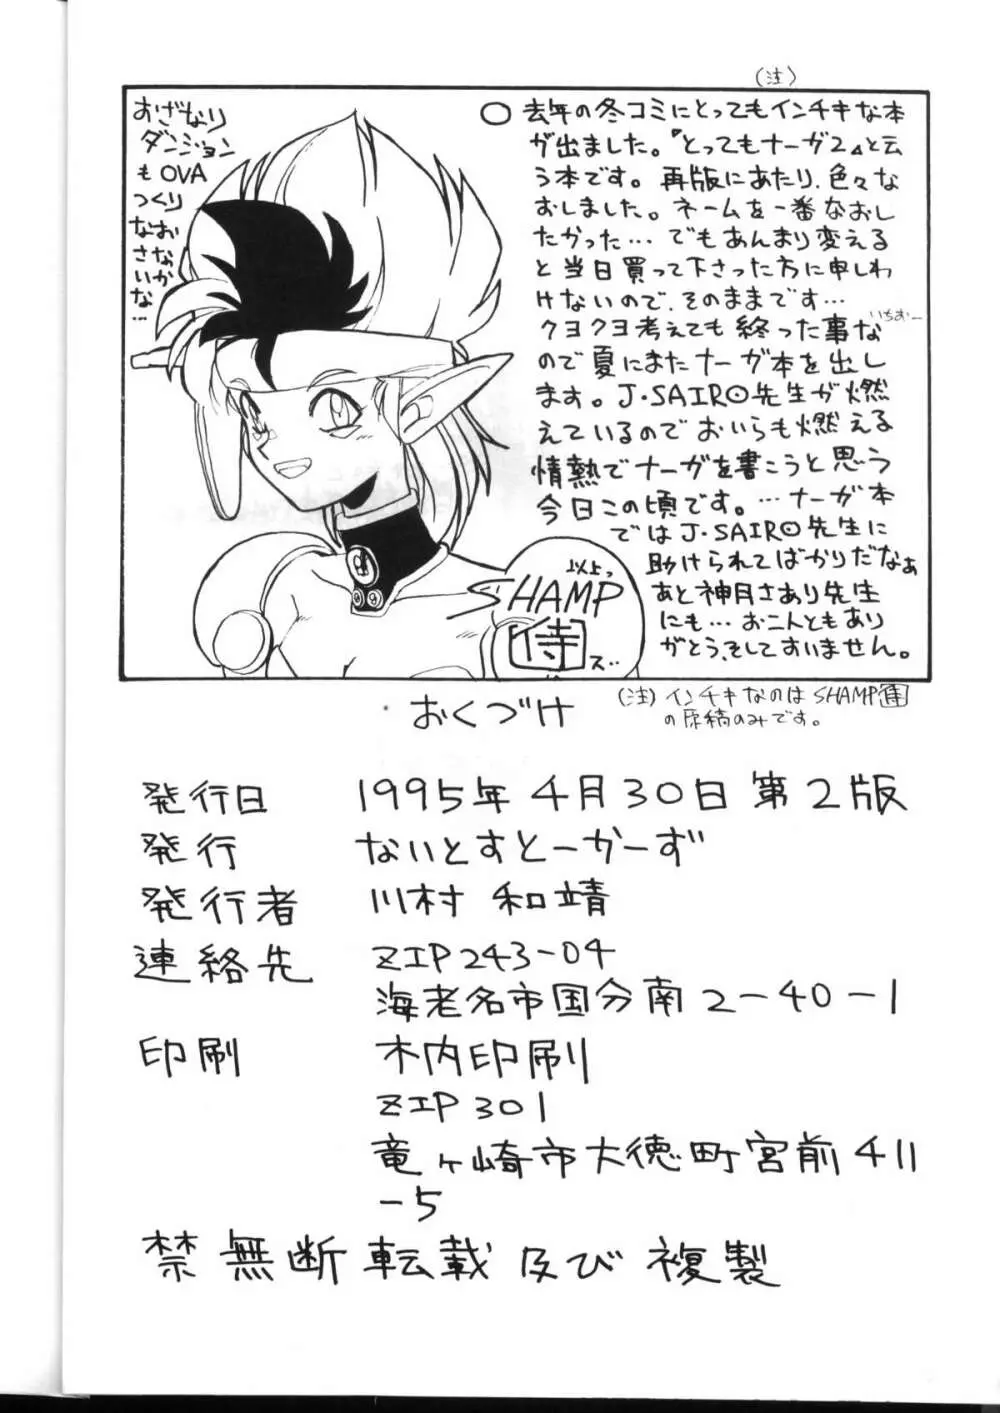 (注)
おざなり
ダンジョン
も OVA
つくり
なおさい
なかな…
○ 去年の冬コミにとってもインチキな本
が出ました。『とってもナーガ2』と云
う本です。再版にあたり、色々な
おしました。ネームを一番なおし
たかった…でもあんまり変える
と当日買って下さった方に申しわ
けないので、そのままです…
いちおー
クヨクヨ考えても終った事な
ので夏にまたナーガ本を出し
ます。J・SAIRO先生が燃
えているのでおいらも燃える
情熱でナーガを書こうと思う
今日この頃です。…ナーガ本
ではJ・SAIRO先生に
助けられてばかりだなぁ
あと神月さあり先生
にも…お二人ともあり
がとう、そしてすいません。
以上っ
SHAMP
侍
ズ
(注) インチキなのはSHAMP侍
の原稿のみです。
おくづけ
発行日 1995年4月30日 第2版
発行 ないとすとーかーず
発行者 川村 和靖
連絡先 ZIP 243-04
海老名市国分南2-40-1
印刷 木内印刷
ZIP 301
竜ヶ崎市大徳町宮前411
-5
禁無断転載及び複製